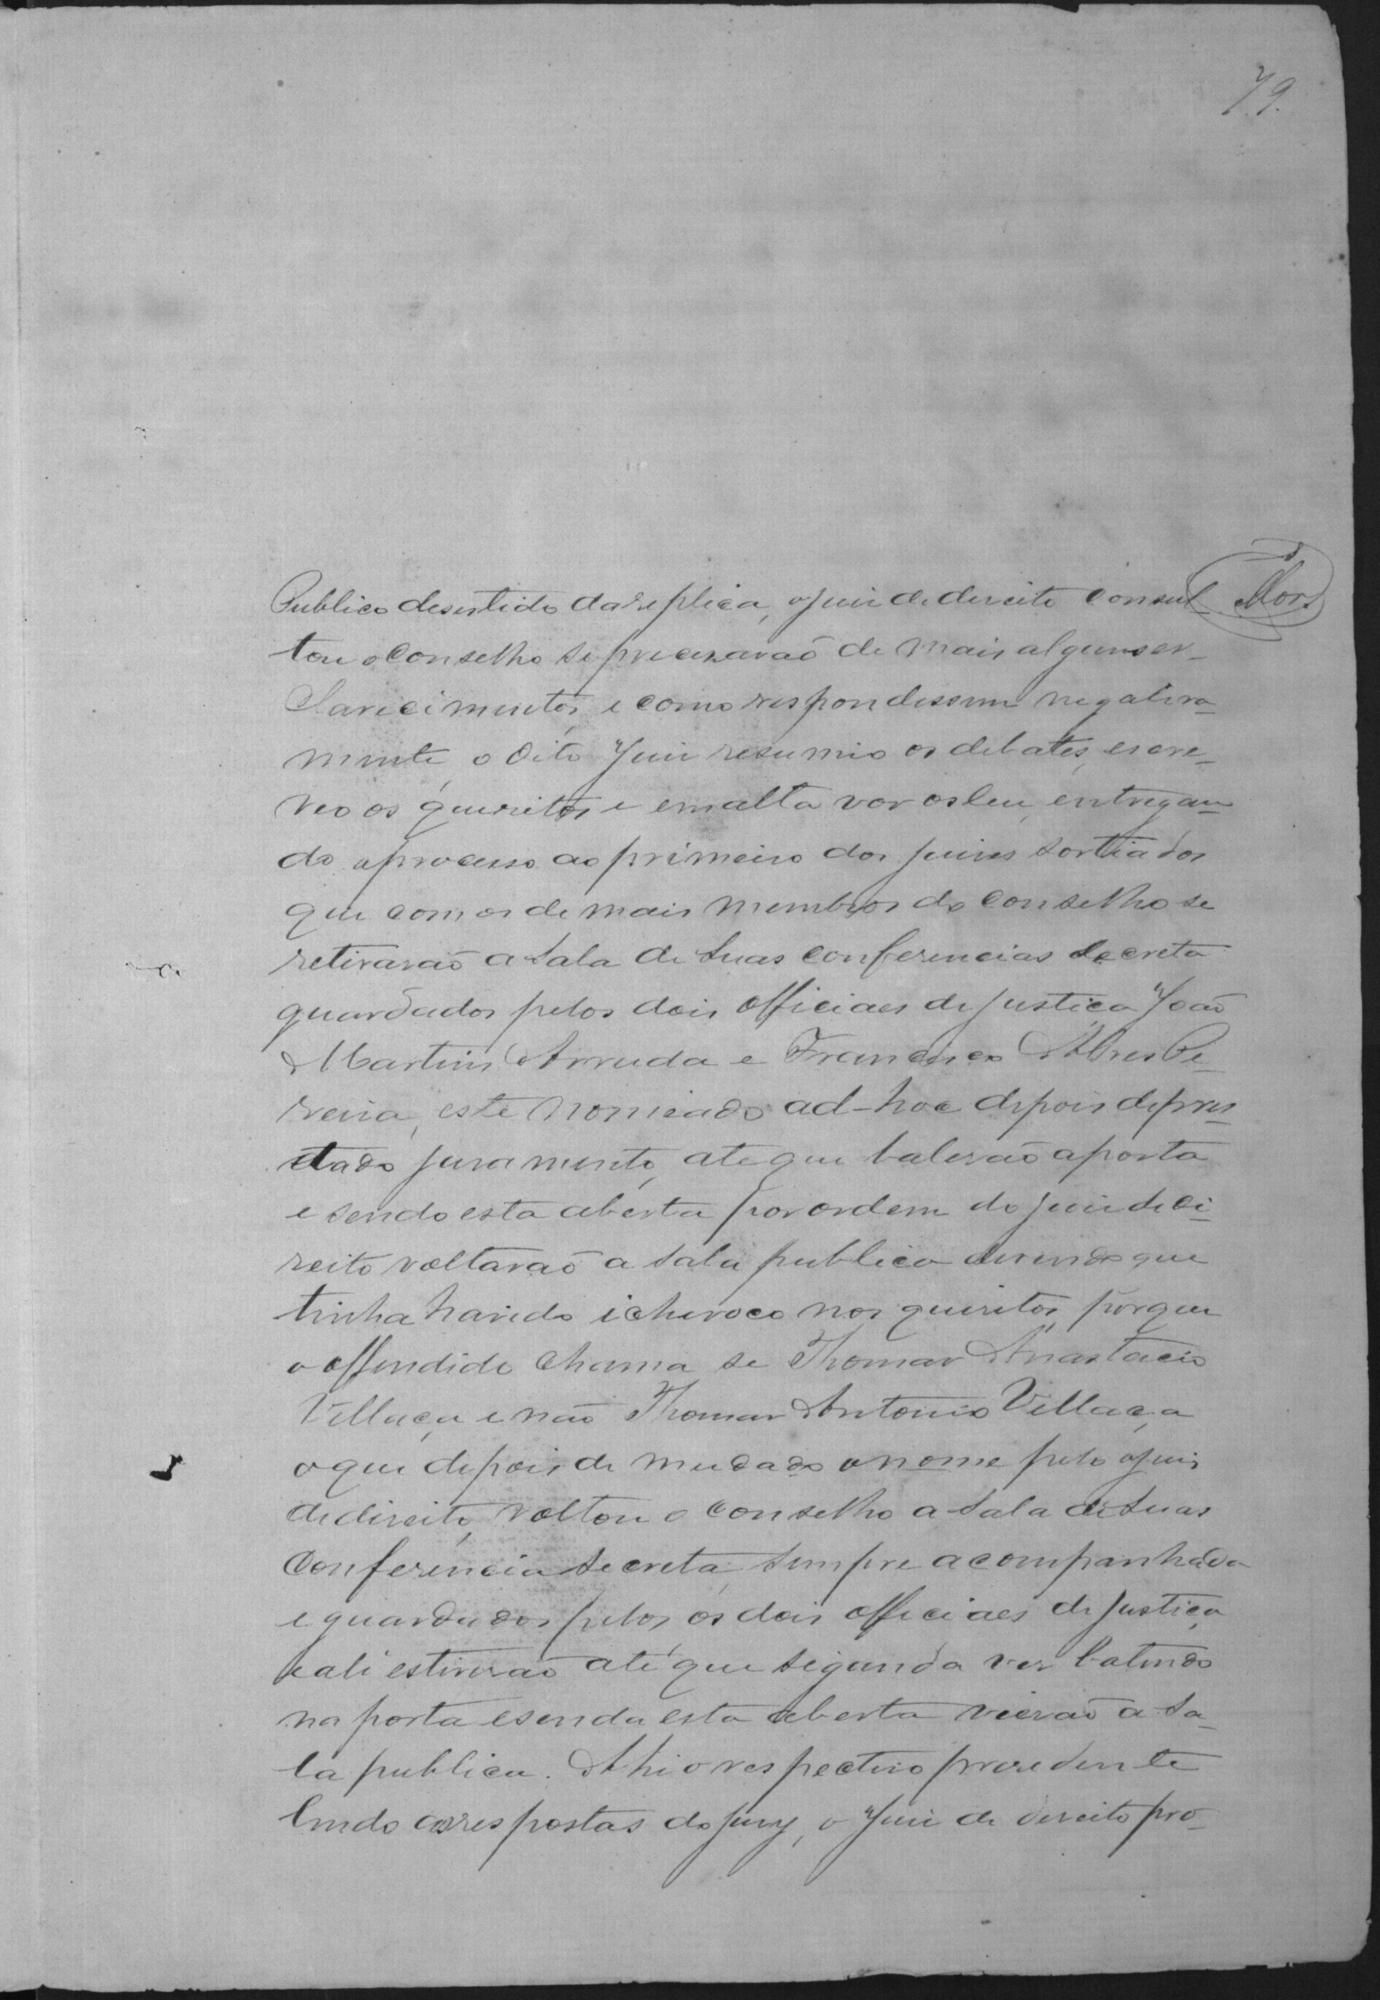 79.
Publico desistido da replica, o juiz de direito consul-
tou o conselho se precizavaõ de mais alguns es-
clarecimentos, e como respondessem negativa-
mente, o dito Juiz resumio os debates, escre-
veo os queizitos e em alta voz os leu, entregan-
do o processo ao primeiro dos juizes sortiados
que com os de mais membros do conselho se
retirarão a sala de suas conferencias secreta
guardados pelos dois officiaes de justiça João
Martins Arruda e Francisco Alves Pe-
reira, este nomiado ad-hoc depois de pres-
tado juramento, ate que baterão a porta
e sendo esta aberta por ordem do juiz de di-
reito voltarão a sala publica dizendo que
tinha havido ichivoco nos queizitos, porque
o offendido chama se Thomaz Anastacio
Villaça, e não Thomaz Antonio Villaça
o que depois de mudado o nome pelo o juiz
de direito, voltou o conselho a sala de suas
conferencia secreta, sempre acompanhada
e guardados pelos os dois officiaes de justiça
e ali estiverão até que segunda vez batendo
na porta e sendo esta aberta vierão a sa-
la publica. Ahi o respectivo prezidente
lendo as respostas do jury, o Juiz de direito pro-